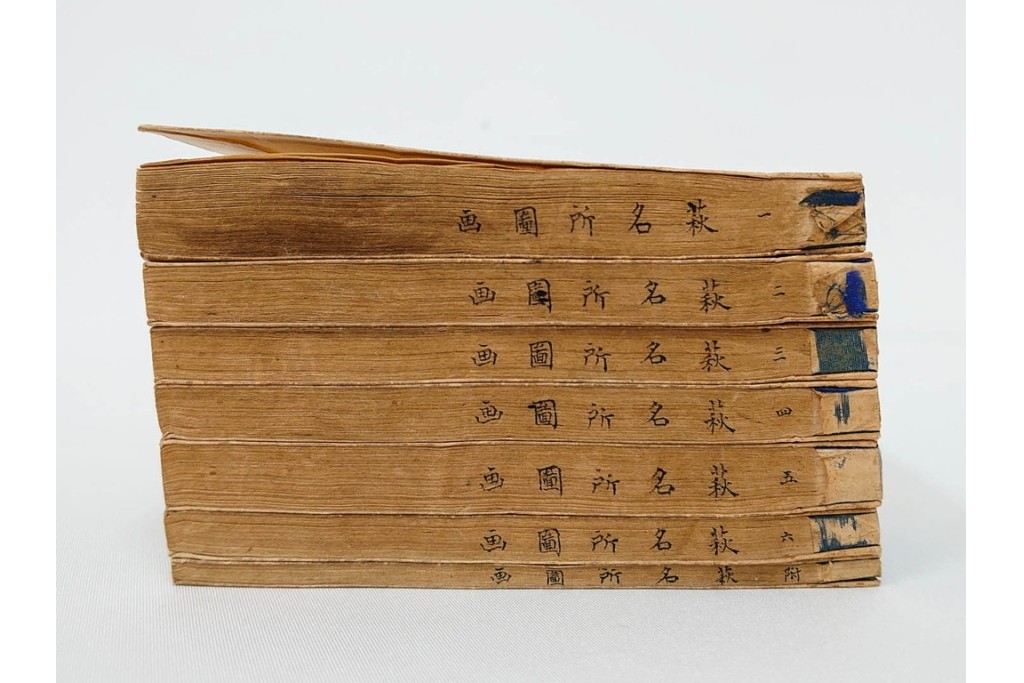 一 萩名所圖画
二 萩名所圖画
三 萩名所圖画
四 萩名所圖画
五 萩名所圖画
六 萩名所圖画
附 萩名所圖画